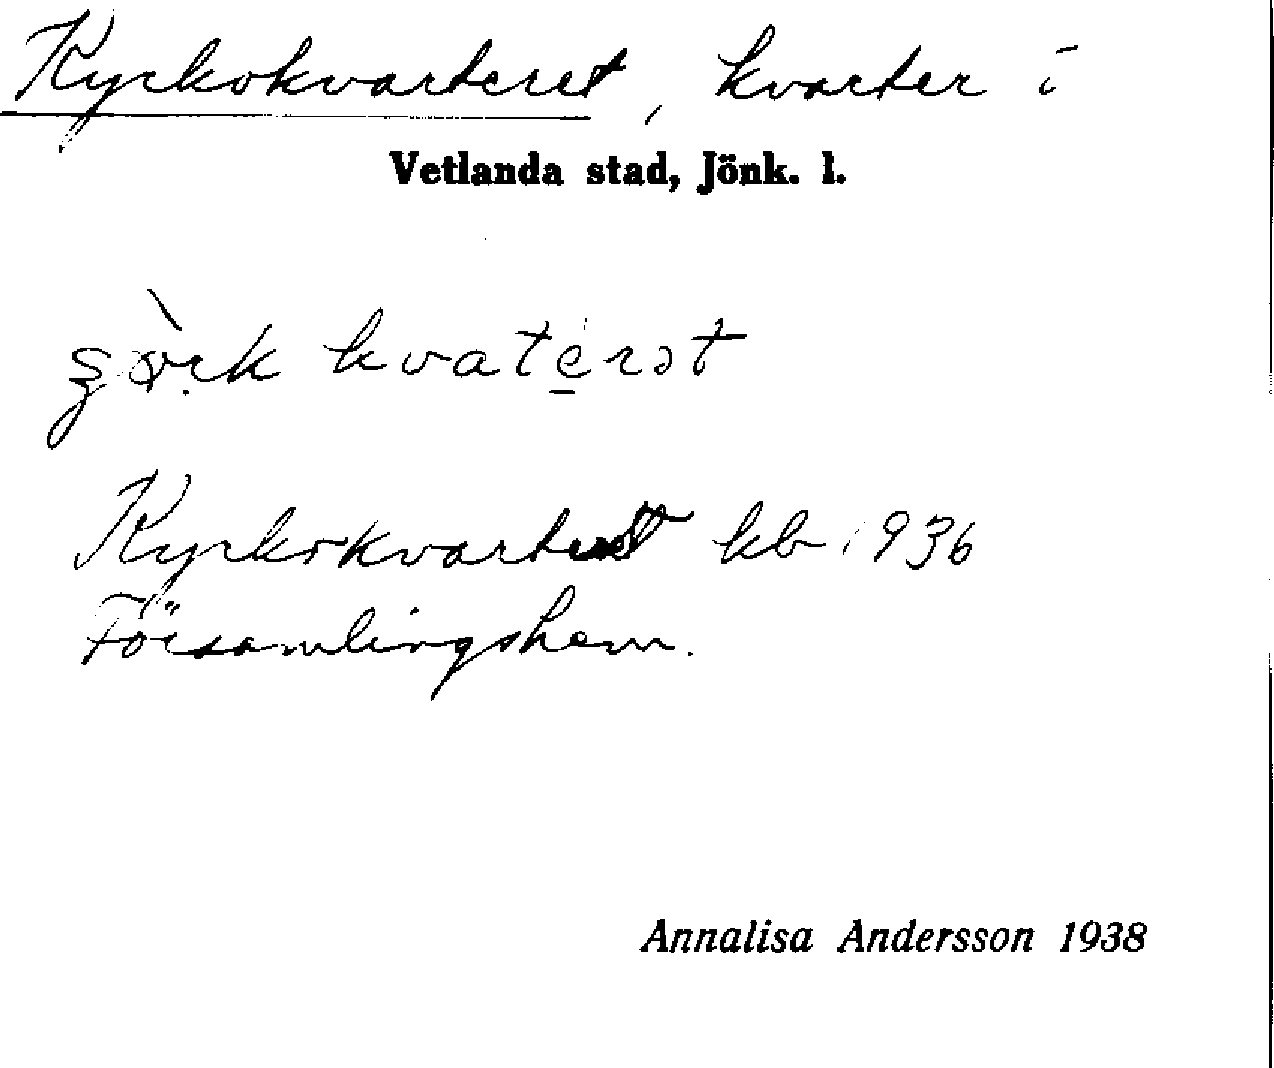 Kyrkokvarteret, kvarter i
Vetlanda stad, Jönk. l.
kvaterət
Kyrkokvarteret kb 1936
Församlingshem.
Annalisa Andersson 1938